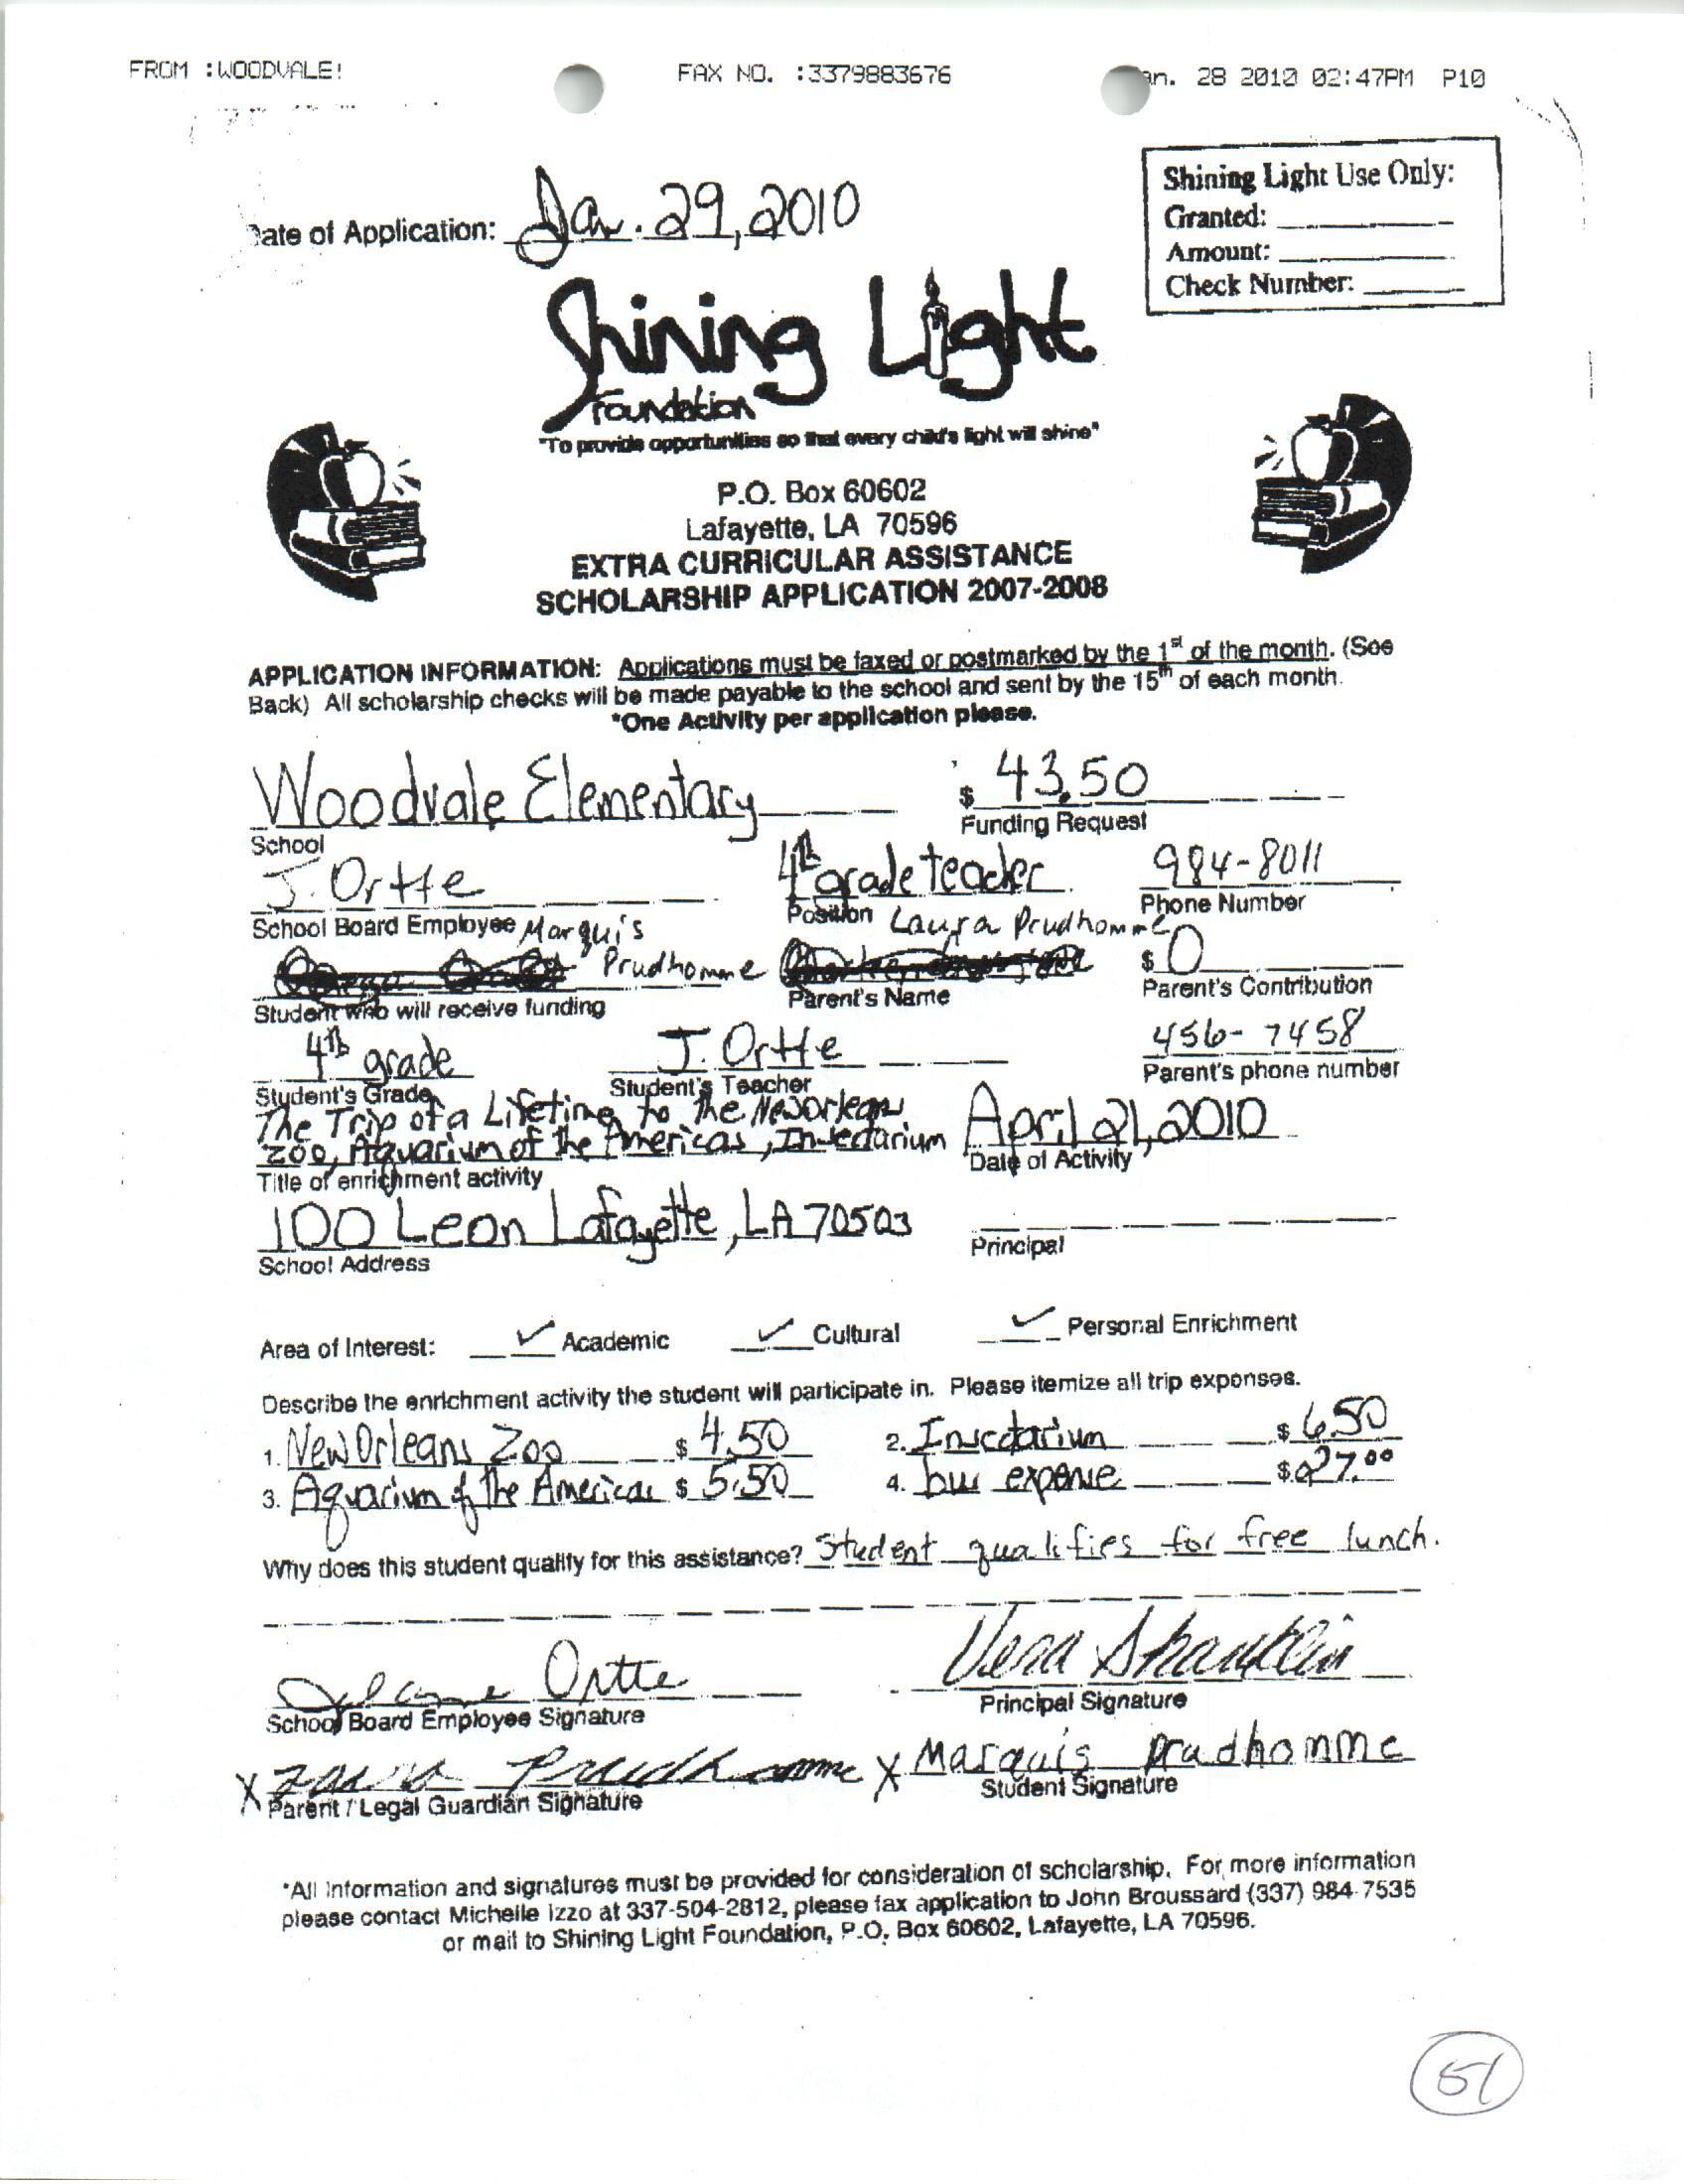 FROM :WOODVALE! FAX NO. :3379883676 an. 28 2010 02:47PM P10
Date of Application: Jan. 29, 2010
Shining Light Use Only:
Granted:
Amount:
Check Number:
Shining Light
Foundation
"To provide opportunities so that every child's light will shine"
P.O. Box 60602
Lafayette, LA 70596
EXTRA CURRICULAR ASSISTANCE
SCHOLARSHIP APPLICATION 2007-2008
APPLICATION INFORMATION: Applications must be faxed or postmarked by the 1st of the month. (See
Back) All scholarship checks will be made payable to the school and sent by the 15th of each month.
*One Activity per application please.
Woodvale Elementary $ 43.50
School Funding Request
J. Ortte 4th grade teacher 984-8011
School Board Employee Position Phone Number
Marquis Prudhomme Laura Prudhomme $ 0
Student who will receive funding Parent's Name Parent's Contribution
4th grade J. Ortte 456-7458
Student's Grade Student's Teacher Parent's phone number
The Trip of a Lifetime to the New Orleans
Zoo, Aquarium of the Americas, Insectarium April 21, 2010
Title of enrichment activity Date of Activity
100 Leon Lafayette, LA 70503
School Address Principal
Area of Interest: ✓ Academic ✓ Cultural ✓ Personal Enrichment
Describe the enrichment activity the student will participate in. Please itemize all trip expenses.
1. New Orleans Zoo $ 4.50 2. Insectarium $ 6.50
3. Aquarium of the Americas $ 5.50 4. bus expense $ 27.00
Why does this student qualify for this assistance? Student qualifies for free lunch.
Ortte Vera Shanklin
School Board Employee Signature Principal Signature
X Laura Prudhomme X Marquis Prudhomme
Parent / Legal Guardian Signature Student Signature
*All information and signatures must be provided for consideration of scholarship. For more information
please contact Michelle Izzo at 337-504-2812, please fax application to John Broussard (337) 984-7535
or mail to Shining Light Foundation, P.O. Box 60602, Lafayette, LA 70596.
51